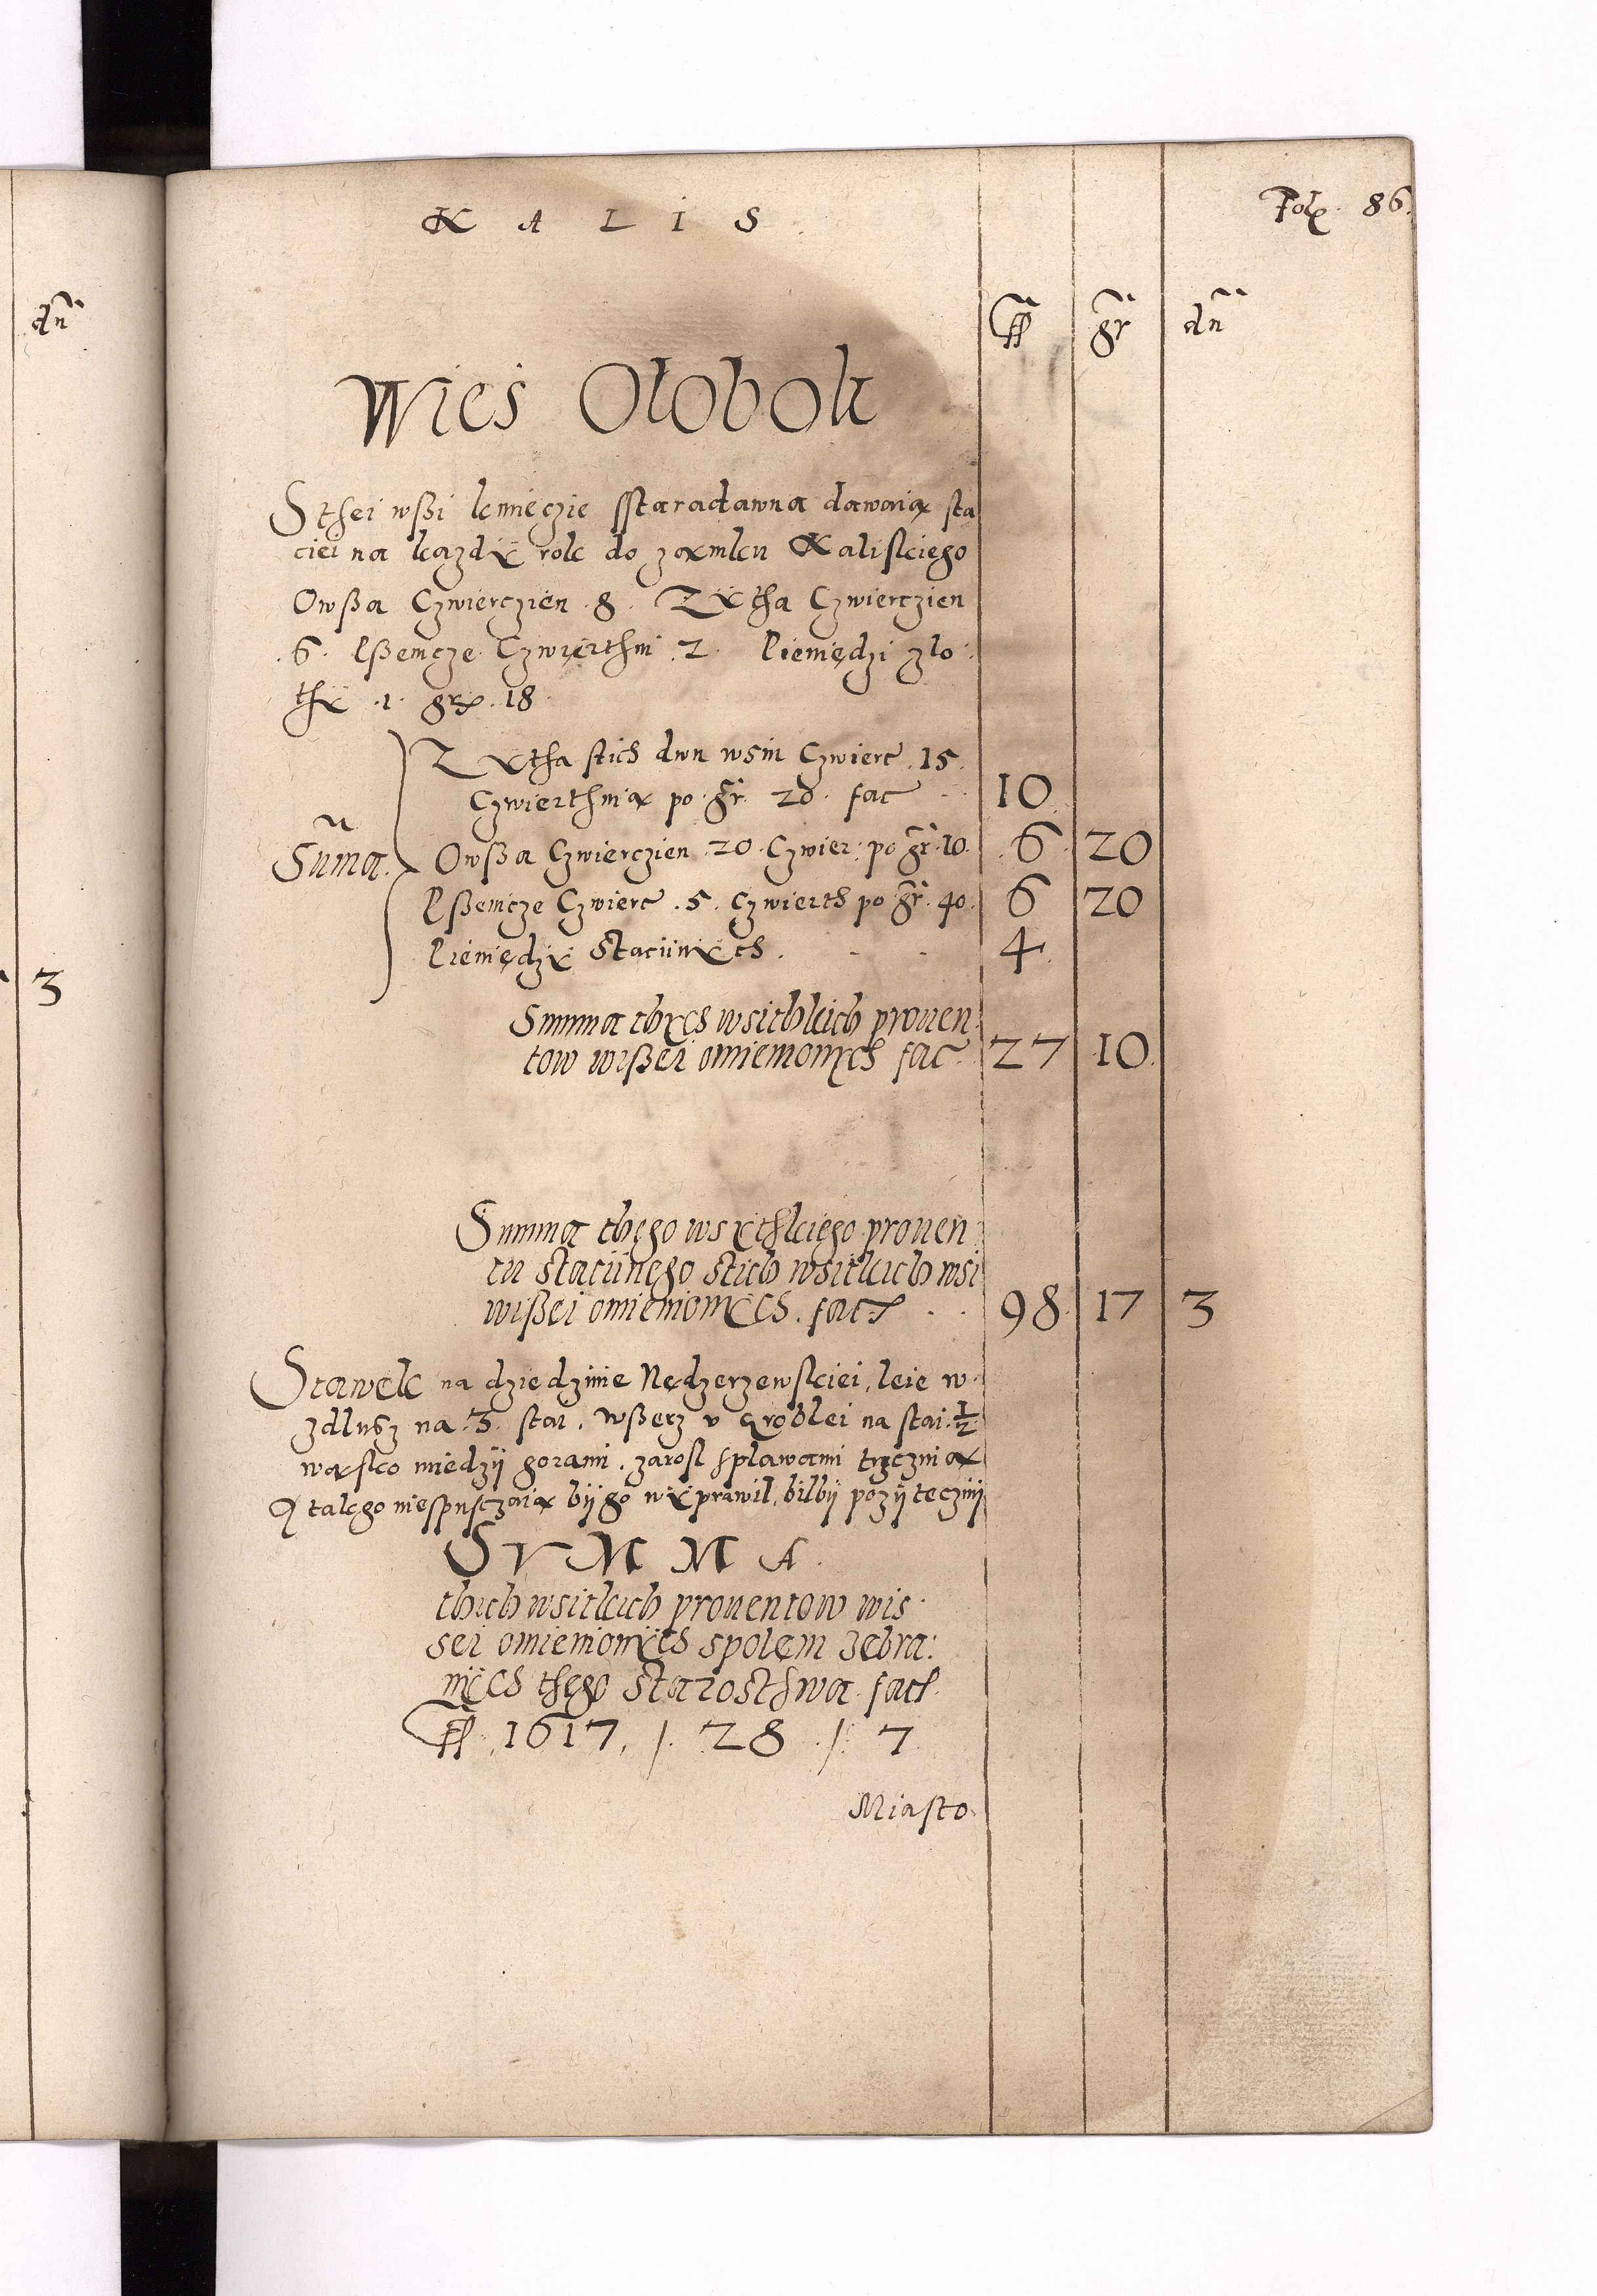 K A L I S
Fol. 86.
fl gr dn
dn
Wieś Ołobok
S thei wßi kmieczie sstaradawna dawaią sta
ciei na każdÿ rok do zamku Kaliskiego
Owßa Czwierczien 8. Zÿtha Czwierczien
6. Pßenicze Czwierthni 2. Pieniędzi zło
thÿ 1. gr. 18
Zÿtha stich dwu wsiu Czwierc 15.
Czwierthnia po gr. 20. fac 10
Suma. Owßa Czwierczien 20. Czwier. po gr. 10. 6 20
Pßenicze Czwierc .5. Czwierth po gr. 40. 6 20
Pieniędzÿ Staciinÿch. 4
3
Summa thÿch wsithkich prouen
tow wißei omienionÿch fac 27 10
Summa thego wsÿthkiego prouen
tu staciinego stich wsitkich wsi
wißei omienionÿch. fact 98 17 3
Stawek na dziedzinie Nędzerzewskiei, leie w
zdłusz na 3. stai. wßerz v groblei na stai ½
wąsko miedzÿ gorami. zarosl splawami trzcznią
talego niespusczaią bÿ go wÿprawil, bilbÿ pozÿtecznÿ
S V M M A.
thich wsitkich prouentow wis
sei omienionÿch społem zebra:
nÿch thego starosthwa fact
fl 1617 / 28 / 7
Miasto.